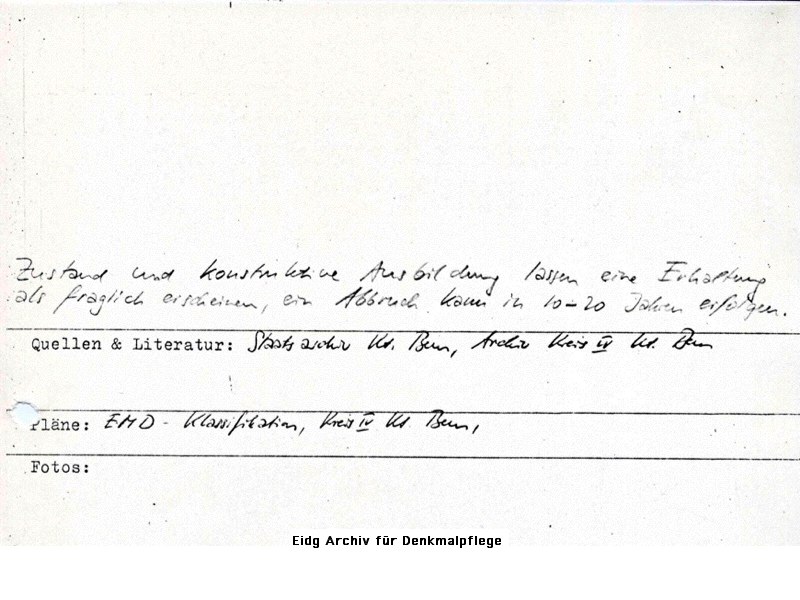 Zustand und konstruktive Ausbildung lassen eine Erhaltung
als fraglich erscheinen, ein Abbruch kann in 10-20 Jahren erfolgen.
Quellen & Literatur: Staatsarchiv Kt. Bern, Archiv Kreis IV Kt. Bern
Pläne: EMD - Klassifikation, Kreis IV Kt. Bern,
Fotos:
Eidg Archiv für Denkmalpflege